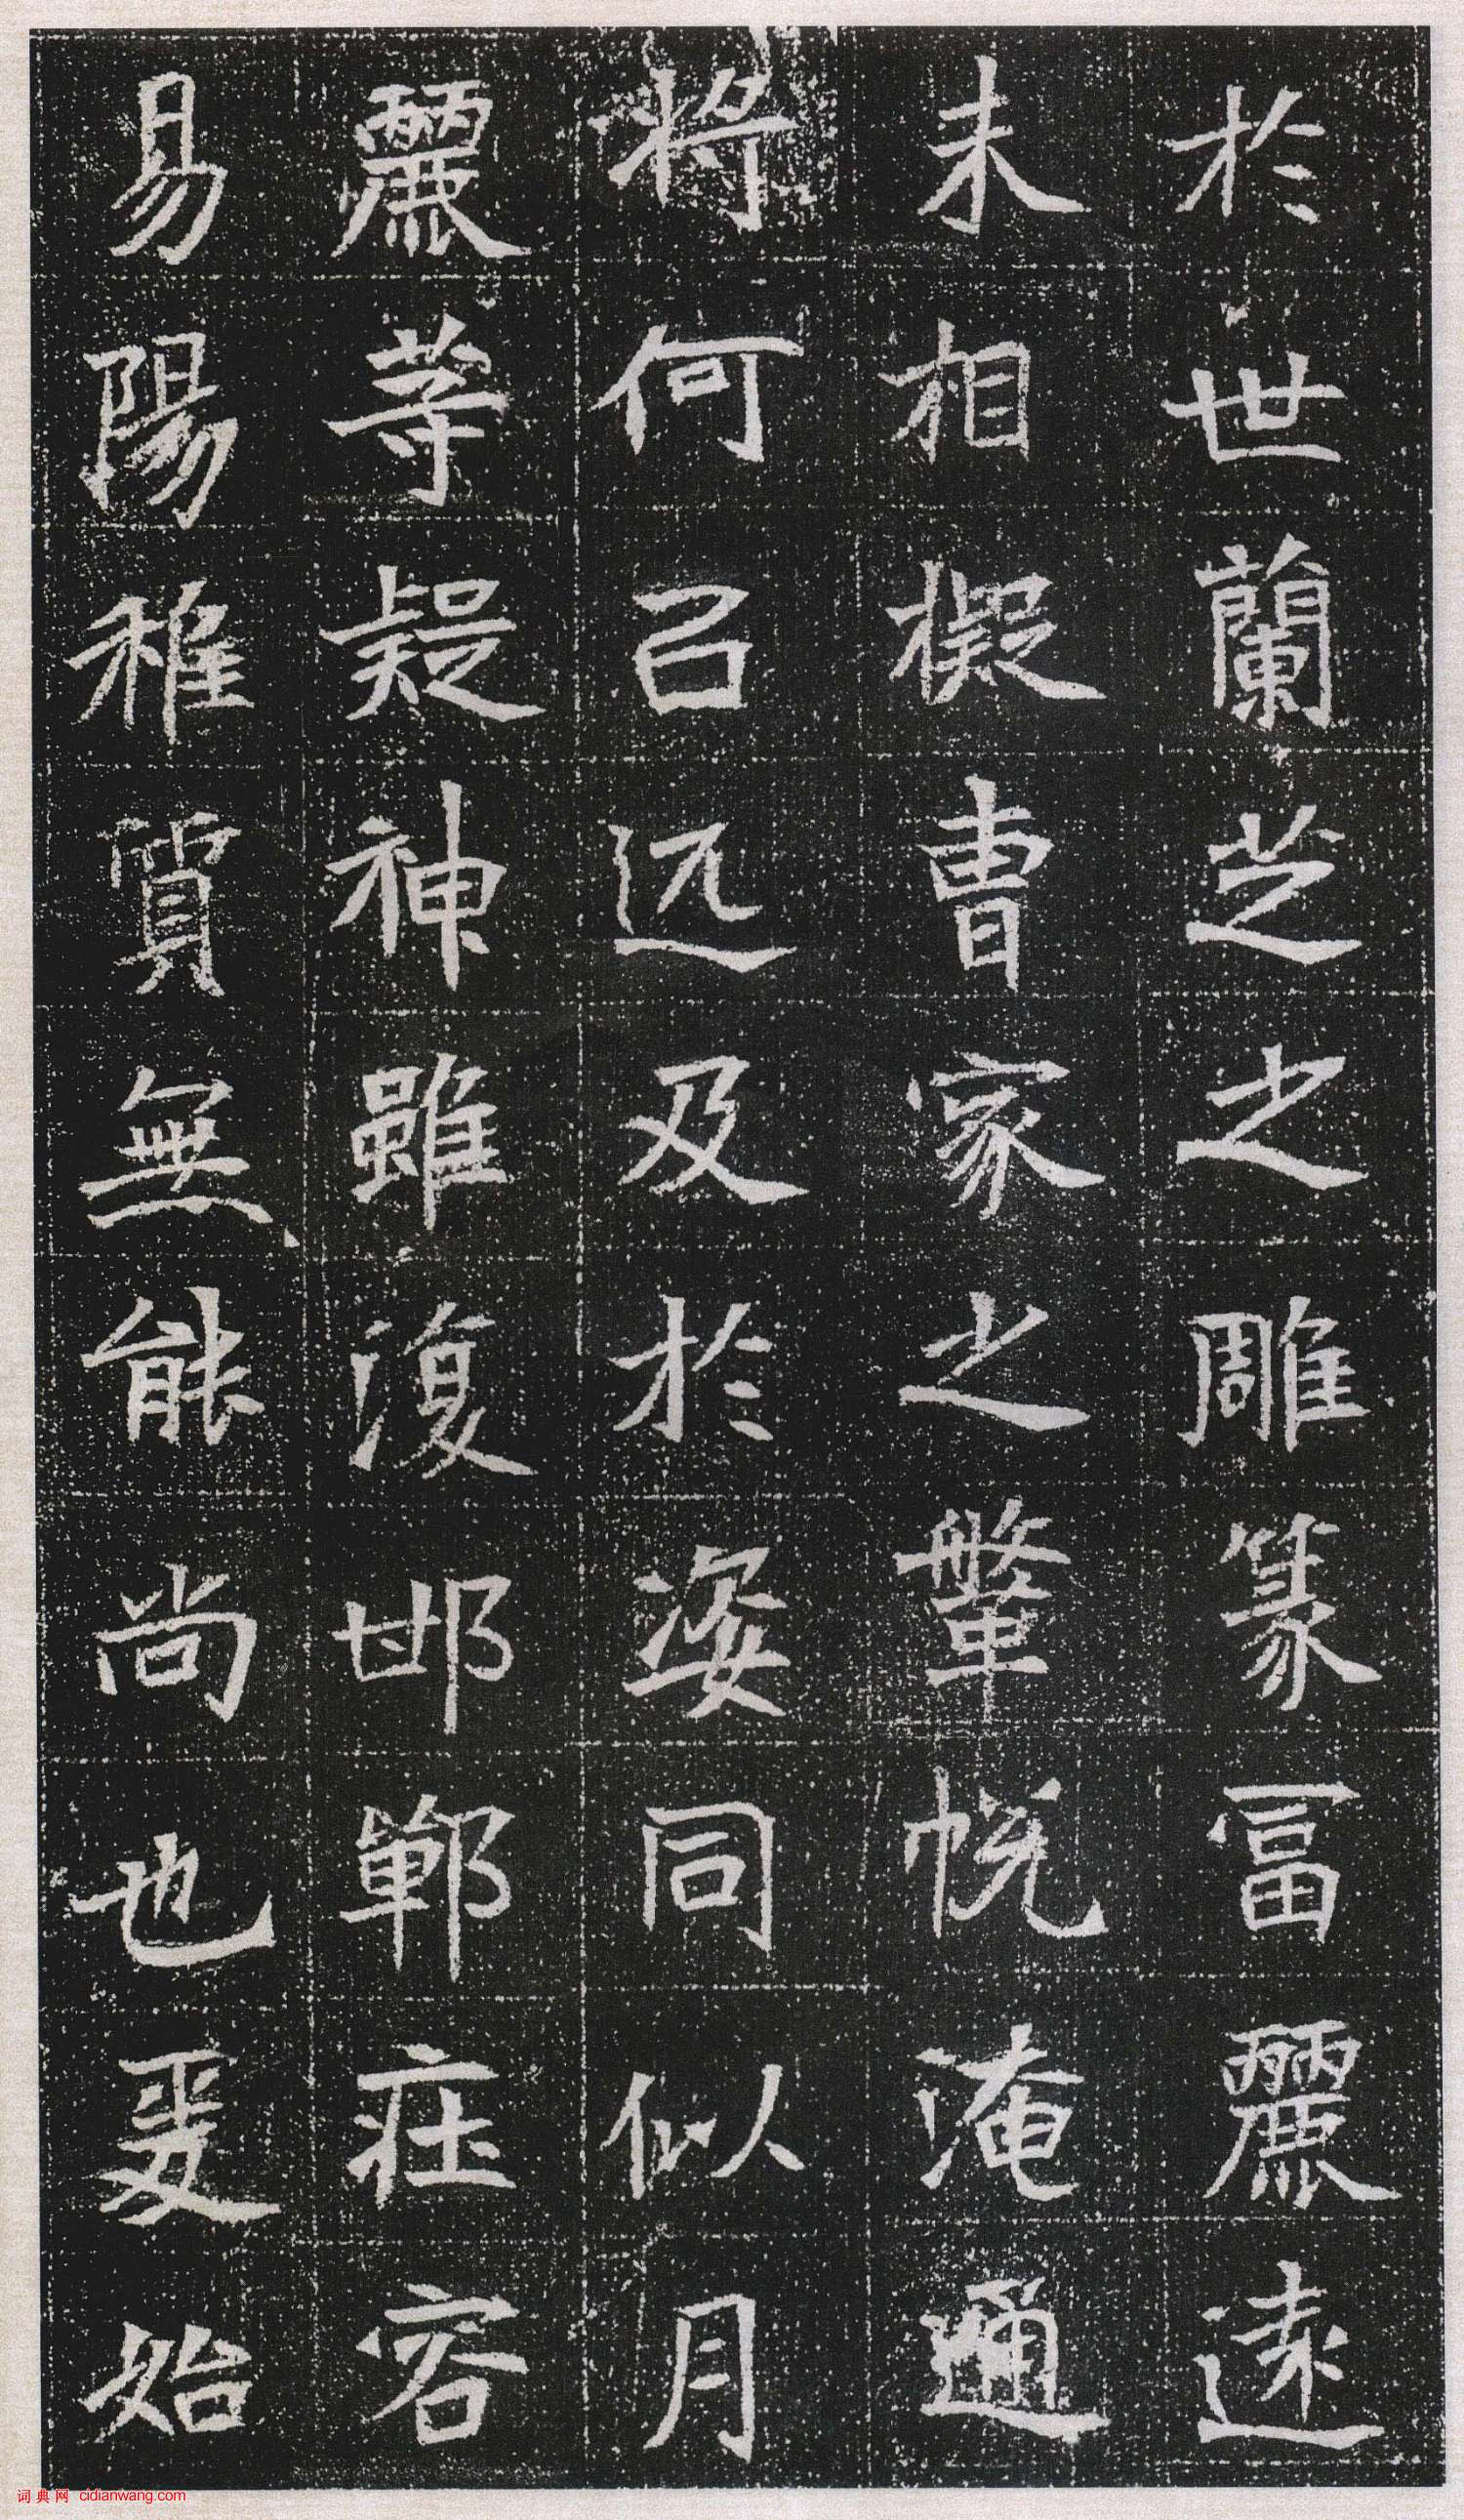 於世蘭芝之雕篆富麗遠
未相擬曹家之鞶帨淹通
將何以遠及於姿同似月
麗等疑神雖復邯鄲庄容
易陽稚質無能尚也爰始
词典网 cidianwang.com